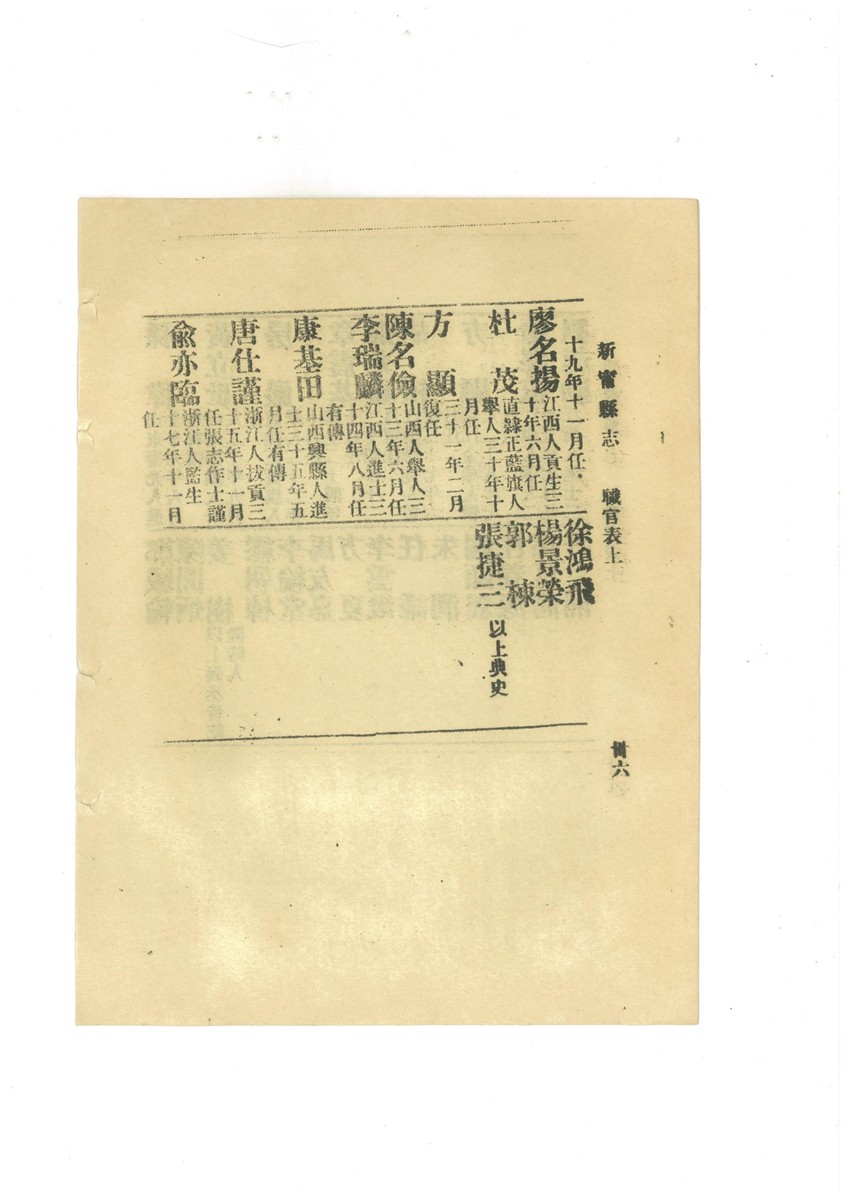 新甯縣志　職官表上　卅六
十九年十一月任
廖名揚
江西人貢生三
十年六月任
杜　茂
直隸正藍旗人
舉人三十年十
月任
方　顯
三十一年二月
復任
陳名儉
山西人舉人三
十三年六月任
李瑞麟
江西人進士三
十四年八月任
有傳
康基田
山西興縣人進
士三十五年五
月任有傳
唐仕謹
浙江人拔貢三
十五年十一月
任張志作士謹
俞亦臨
浙江人監生
十七年十一月
任
徐鴻飛
楊景榮
郭　棟
張捷三　以上典史